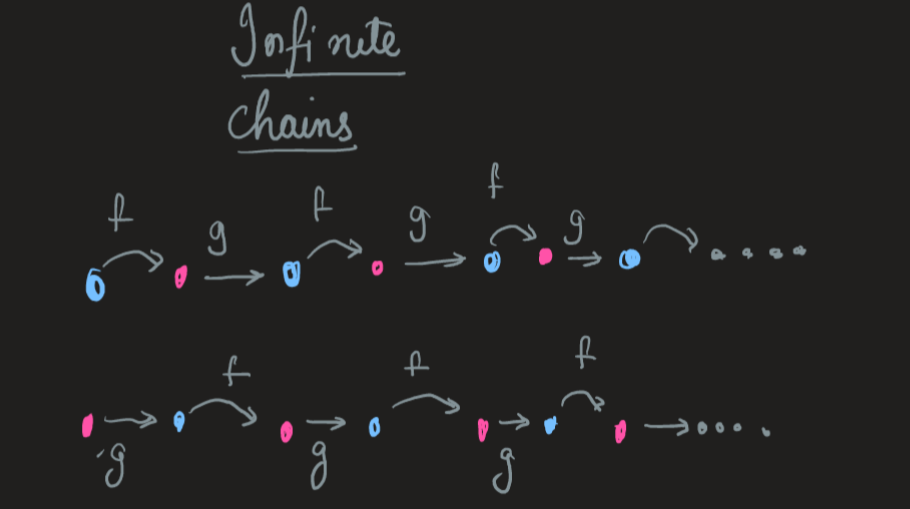 Infinite
chains
f g f g f g
f f f
g g g